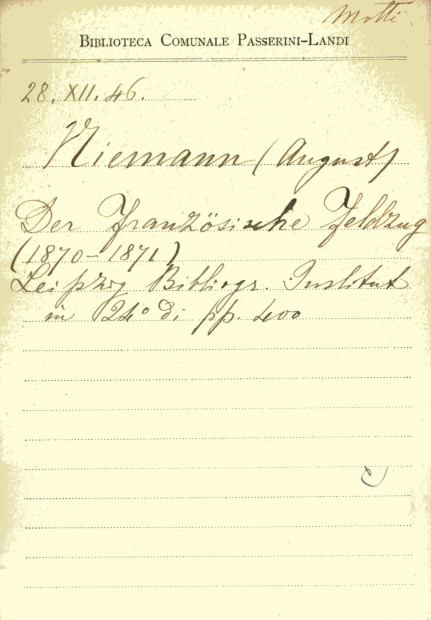 Motti.
BIBLIOTECA COMUNALE PASSERINI-LANDI
28. XII. 46.
Niemann (August)
Der Französische Feldzug
(1870-1871)
Leipzig Bibliogr. Institut
in 24° di pp. 400